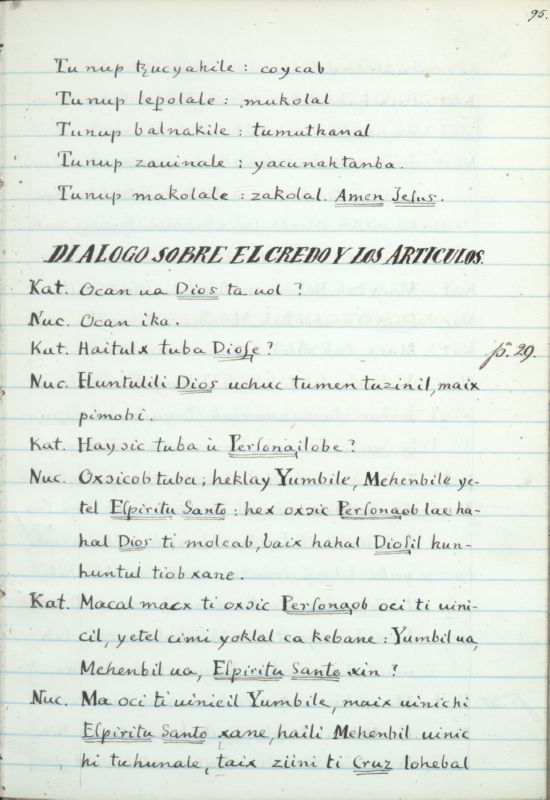 95.
Tunup tzucyahile : coycab
Tunup lepolale : mukolal
Tunup balnakile : tumuthanal
Tunup zauinale : yacunahtanba.
Tunup makolale : zakolal. Amen Jeſus.
DIALOGO SOBRE EL CREDO Y LOS ARTICULOS.
Kat. Ocan ua Dios ta uol ?
Nuc. Ocan ika.
Kat. Haitulx tuba Dioſe ? p. 29.
Nuc. Huntulili Dios uchuc tumen tuzinil, maix
pimobi.
Kat. Hayɔic tuba ù Perſonailobe ?
Nuc. Oxɔicob tuba ; heklay Yumbile, Mehenbile ye-
tel Eſpiritu Santo : hex oxɔic Perſonaob lae ha-
hal Dios ti molcab, baix hahal Dioſil hun-
huntul tiob xane.
Kat. Macal macx ti oxɔic Perſonaob oci ti uini-
cil, yetel cimi yoklal ca kebane : Yumbil ua,
Mehenbil ua, Eſpiritu Santo xin ?
Nuc. Ma oci ti uinicil Yumbile, maix uinichi
Eſpiritu Santo xane, haili Mehenbil uinic
hi tuhunale, taix ziini ti Cruz lohebal